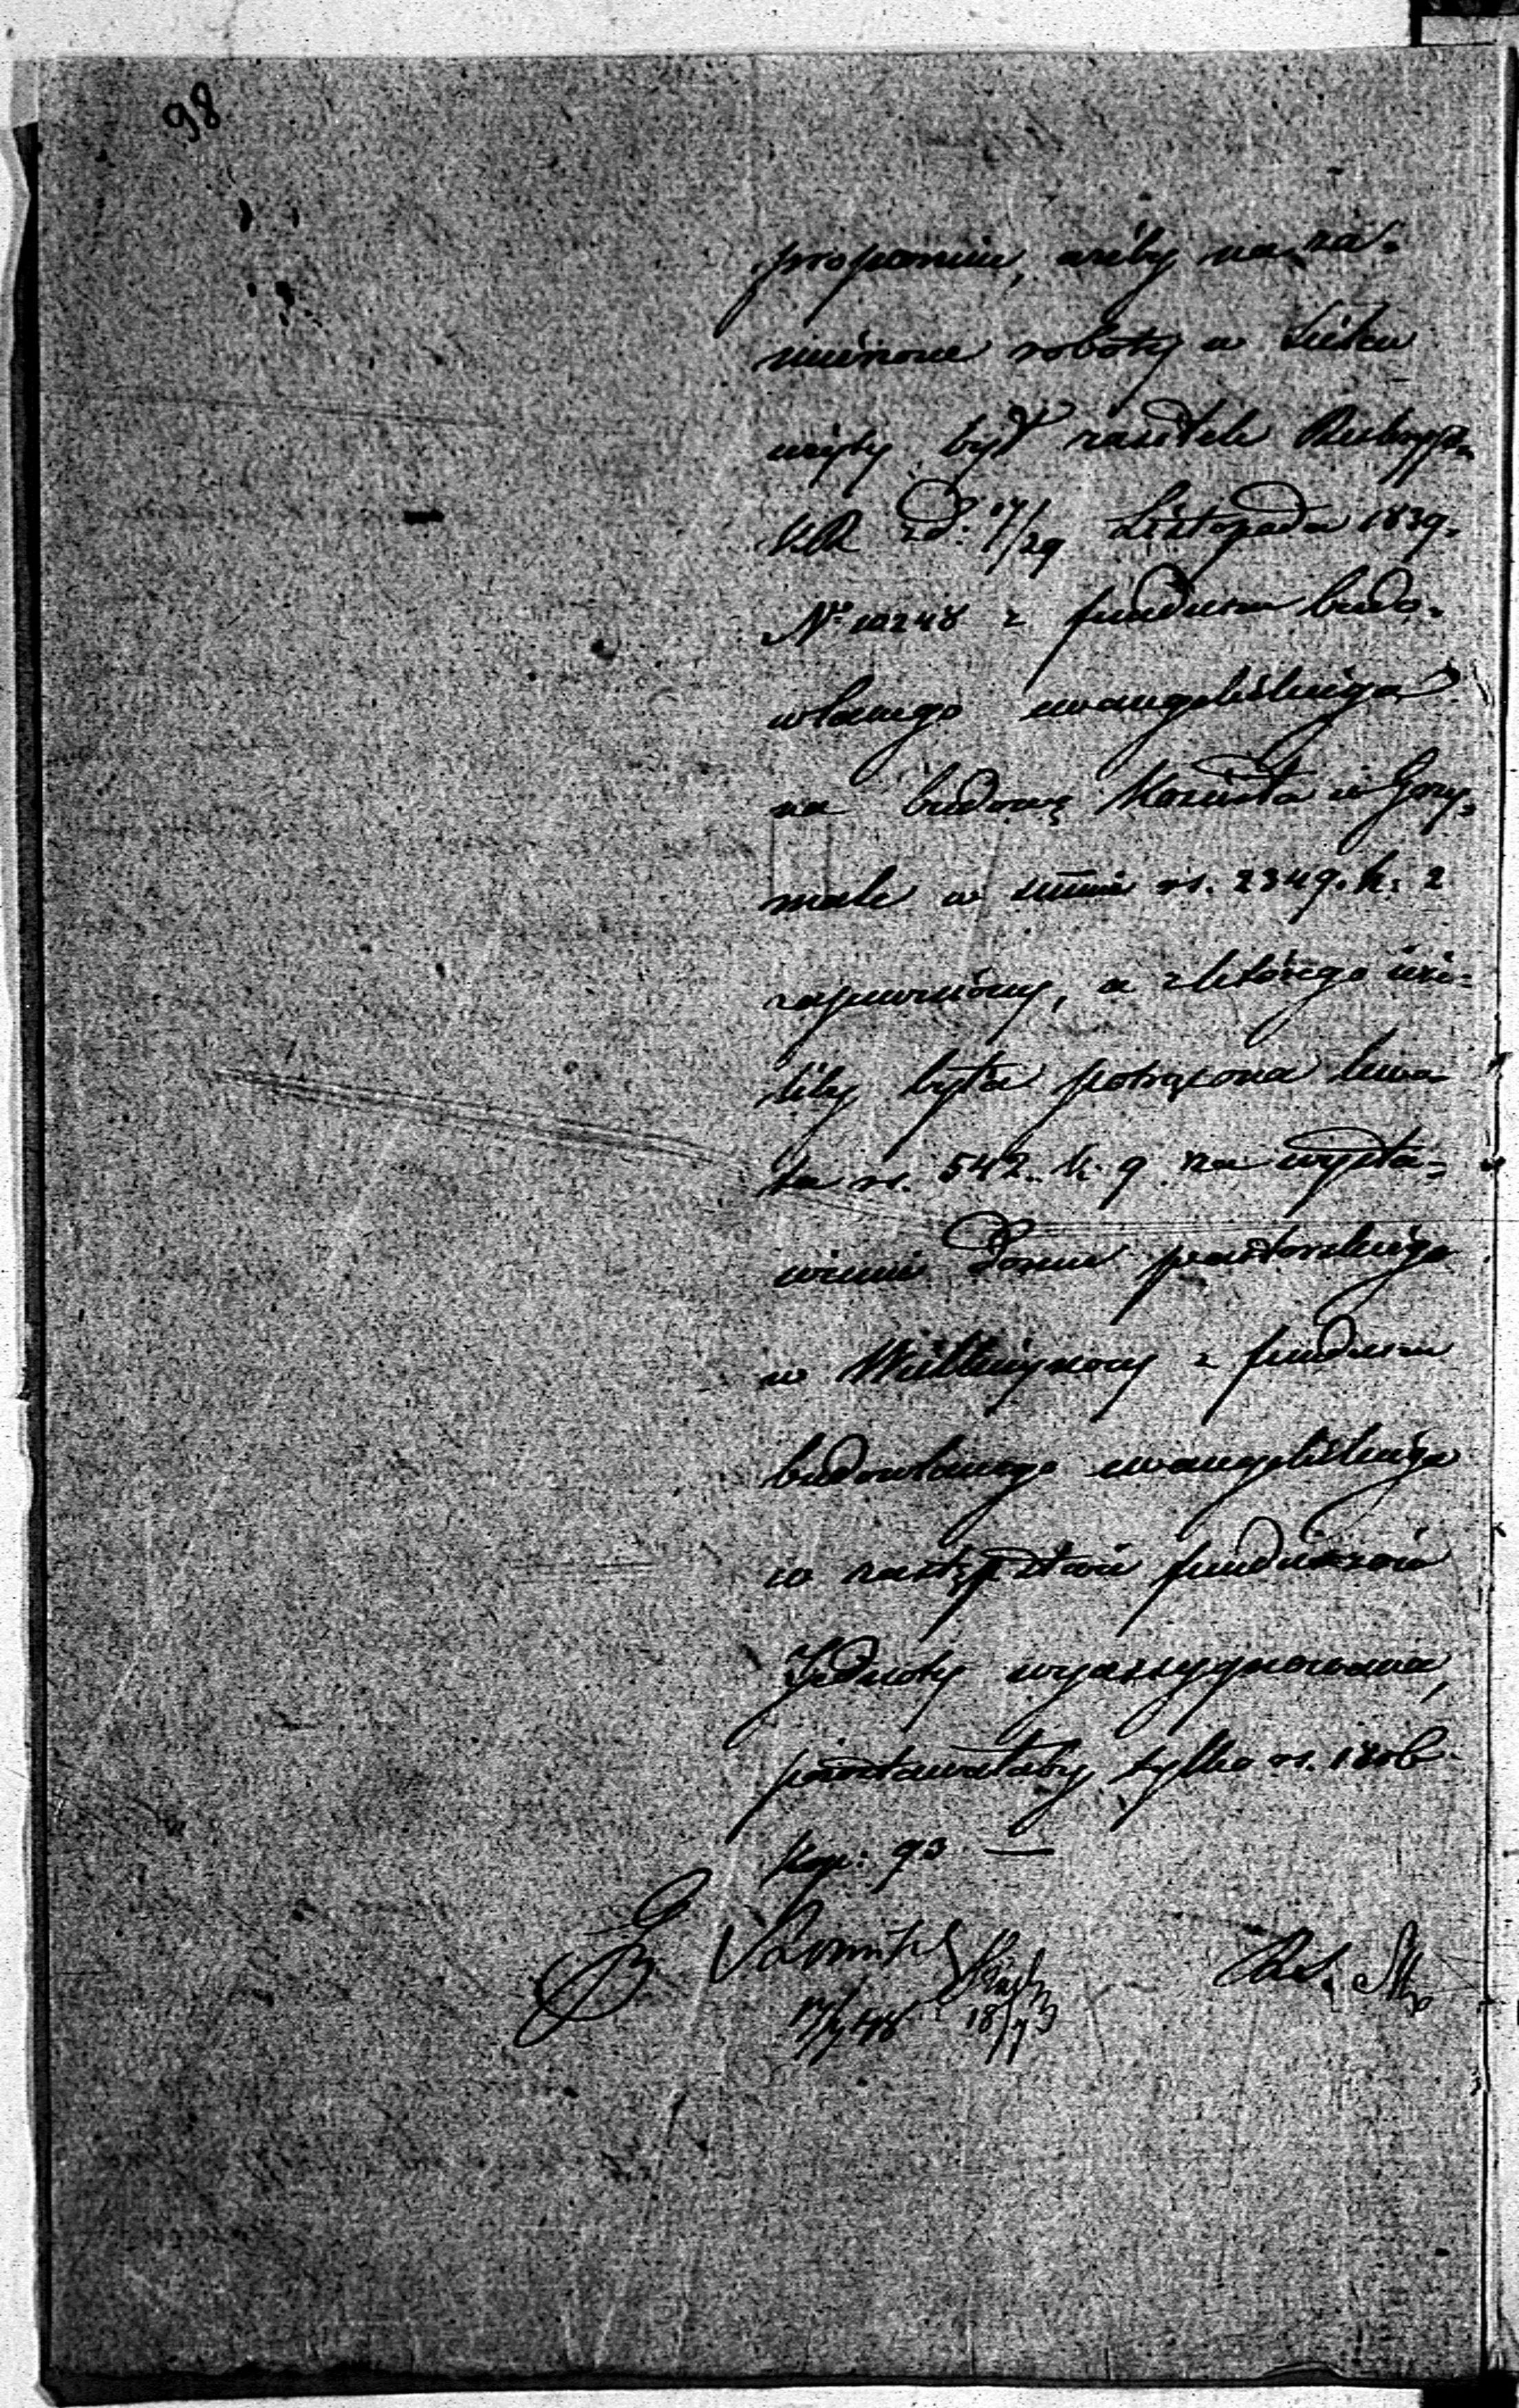 98
proponuie, ażeby na za-
mienione roboty w Lisku
użyty był zasiłek Reskryptem
K.R. z d. 17/29 Listopada 1839.
No 10248 z funduszu budo-
wlanego ewangelickiego
na budowę Kościoła w Grzy-
male w summie rs. 2349. k. 2
zapewniony, a z którego ieże-
liby była potrącona kwo-
ta rs. 542. k. 9 na wysta-
wienie Domu pastorskiego
w funduszu
budowlanego ewangelickiego
w zastępstwie funduszów
Jednoty wyassygnowana,
pozostawałaby tylko rs. 1806
kop: 93 —
17/ 48 18/